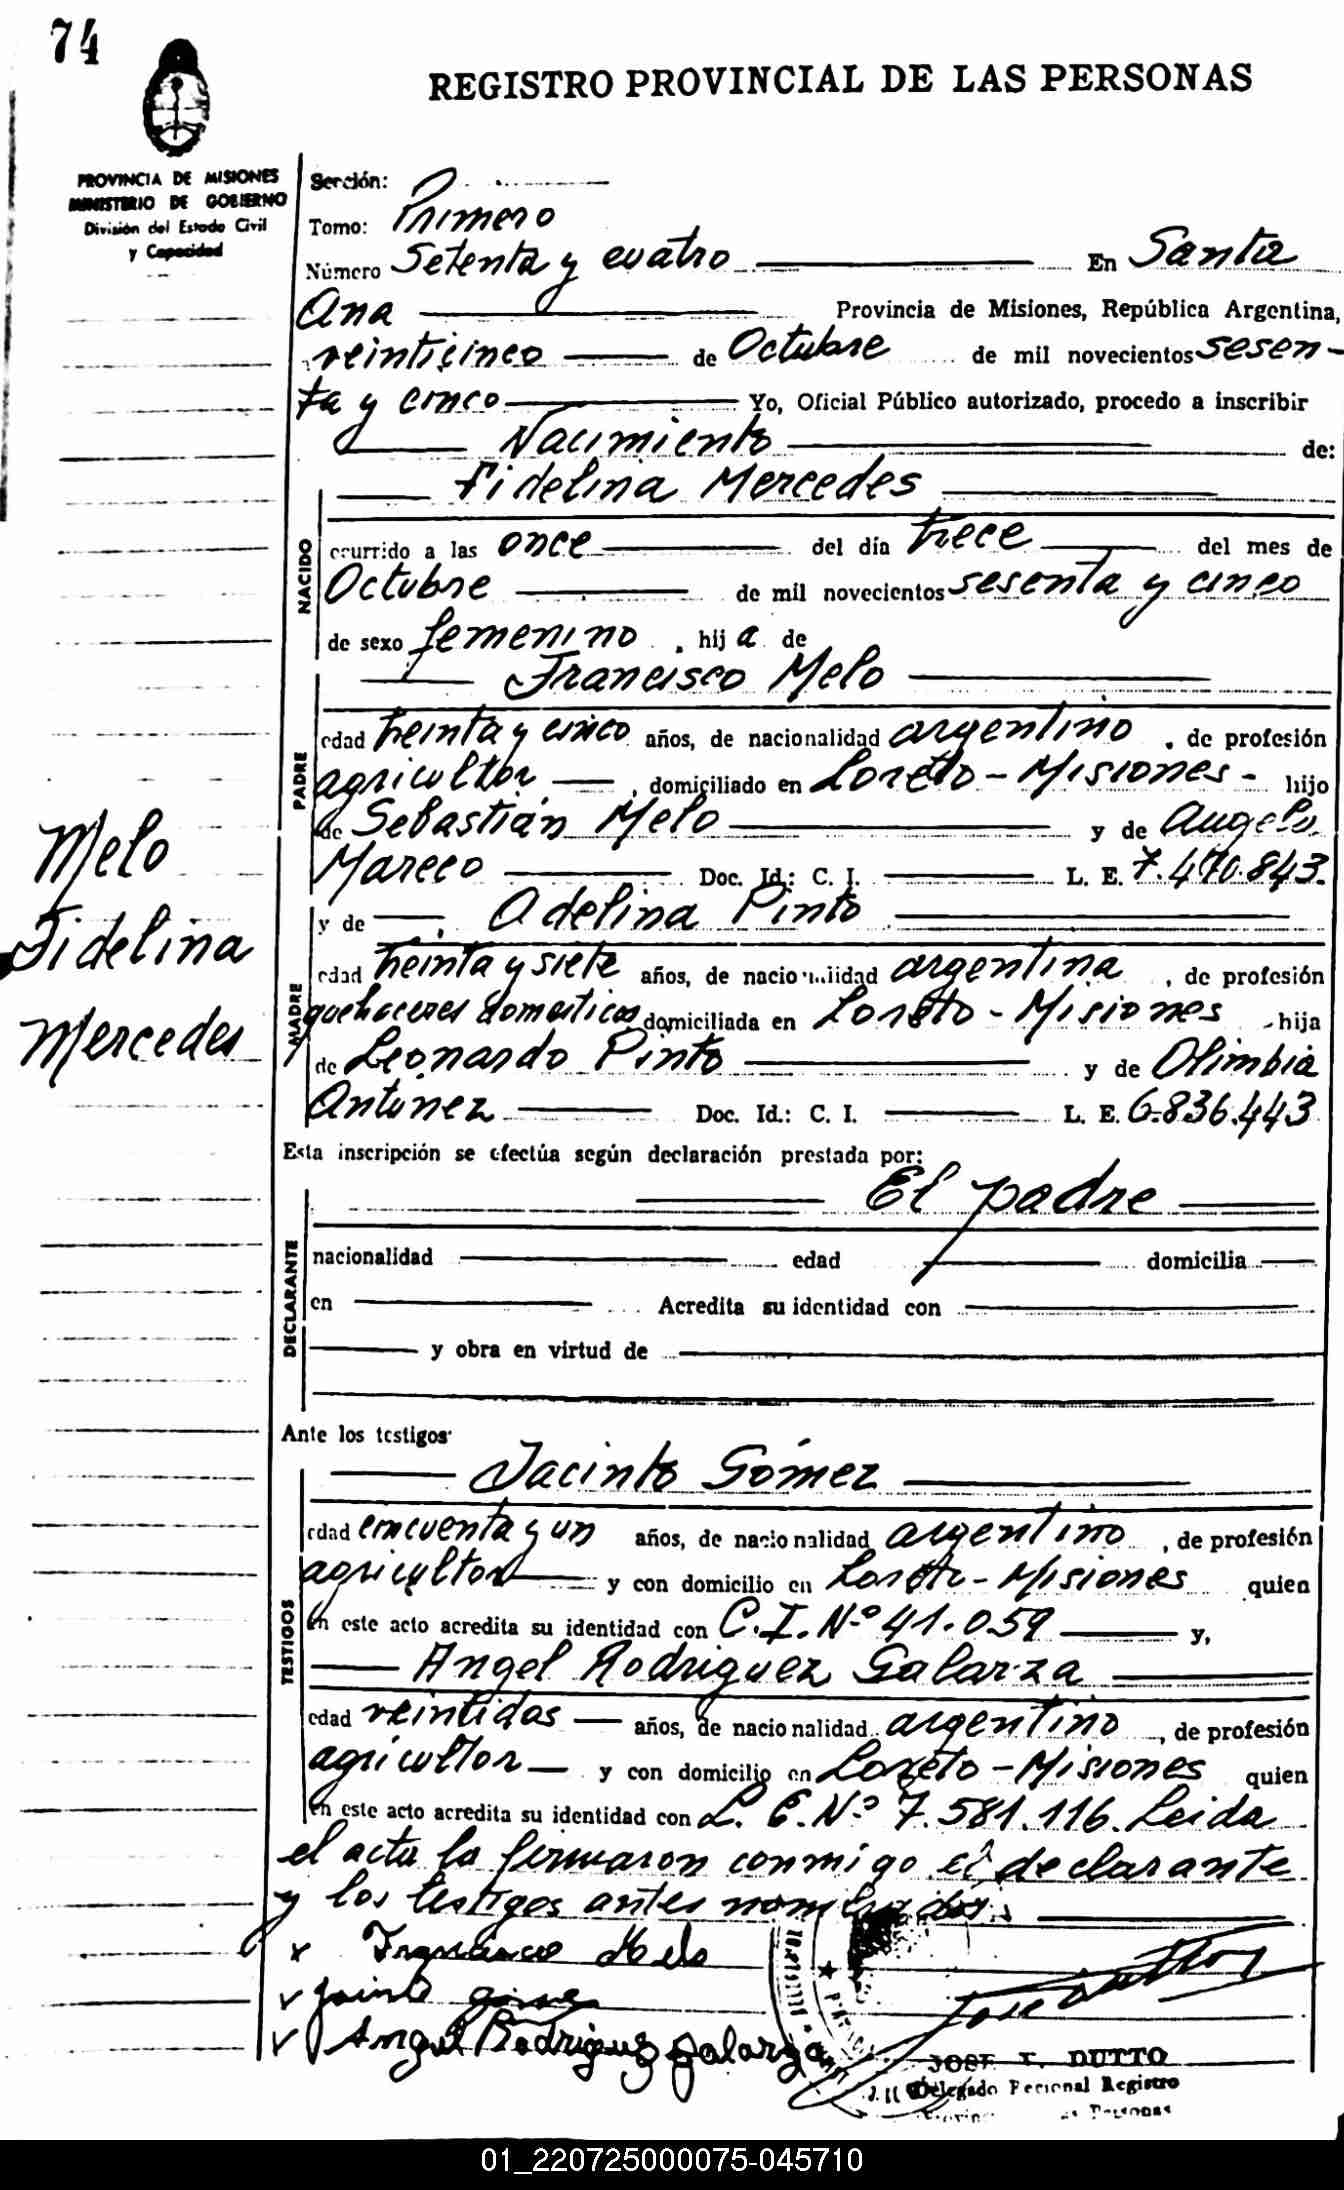 74
REGISTRO PROVINCIAL DE LAS PERSONAS
PROVINCIA DE MISIONES
MINISTERIO DE GOBIERNO
División del Estado Civil
y Capacidad
Sección:
Tomo: Primero
Número Setenta y cuatro En Santa
Ana Provincia de Misiones, República Argentina,
veinticinco de Octubre de mil novecientos sesen-
ta y cinco Yo, Oficial Público autorizado, procedo a inscribir
Nacimiento de:
Fidelina Mercedes
NACIDO
ocurrido a las once del día trece del mes de
Octubre de mil novecientos sesenta y cinco
de sexo femenino, hija de
Francisco Melo
PADRE
edad treinta y cinco años, de nacionalidad argentino, de profesión
agricultor, domiciliado en Loreto - Misiones - hijo
de Sebastián Melo y de Angela
Mareco Doc. Id.: C. I. L. E. 7.470.843.
Melo
Fidelina
Mercedes
y de Adelina Pinto
MADRE
edad treinta y siete años, de nacionalidad argentina, de profesión
quehaceres domesticos, domiciliada en Loreto - Misiones hija
de Leonardo Pinto y de Olimbia
Antúnez Doc. Id.: C. I. L. E. 6.836.443
Esta inscripción se efectúa según declaración prestada por:
El padre
DECLARANTE
nacionalidad edad domicilia
en Acredita su identidad con
y obra en virtud de
Ante los testigos
Jacinto Gómez
TESTIGOS
edad cincuenta y un años, de nacionalidad argentino, de profesión
agricultor y con domicilio en Loreto - Misiones quien
en este acto acredita su identidad con C.I. Nº 41.059 y,
Angel Rodriguez Galarza
edad veintidos años, de nacionalidad argentino, de profesión
agricultor y con domicilio en Loreto - Misiones quien
en este acto acredita su identidad con L. E. Nº 7.581.116. Leida
el acta la firmaron conmigo el declarante
y los testigos antes nombrados.
x Francisco Melo
Angel Rodriguez galarza
JOSE DUTTO
Delegado Registro
Personas
01_220725000075-045710